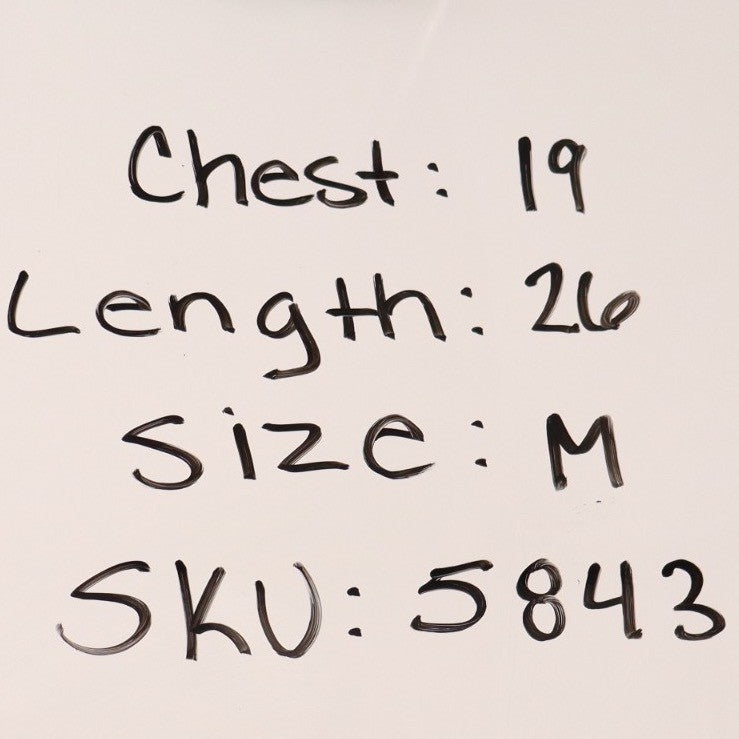 Chest: 19
Length: 26
Size: M
SKU: 5843